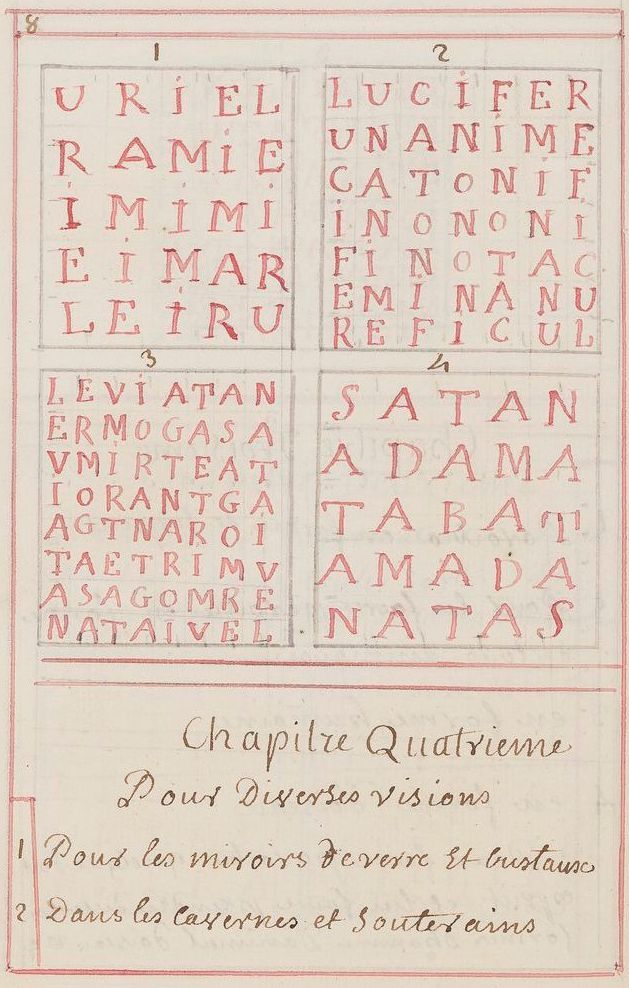 8
1
U R I E L
R A M I E
I M I M I
E I M A R
L E I R U
2
L U C I F E R
U N A N I M E
C A T O N I F
I N O N O N I
F I N O T A C
E M I N A N U
R E F I C U L
3
L E V I A T A N
E R M O G A S A
V M I R T E A T
I O R A N T G A
A G T N A R O I
T A E T R I M V
A S A G O M R E
N A T A I V E L
4
S A T A N
A D A M A
T A B A T
A M A D A
N A T A S
Chapitre Quatrieme
Pour Diverses visions
1 Pour les miroirs de verre Et Cristaux
2 Dans les Cavernes et Souterains